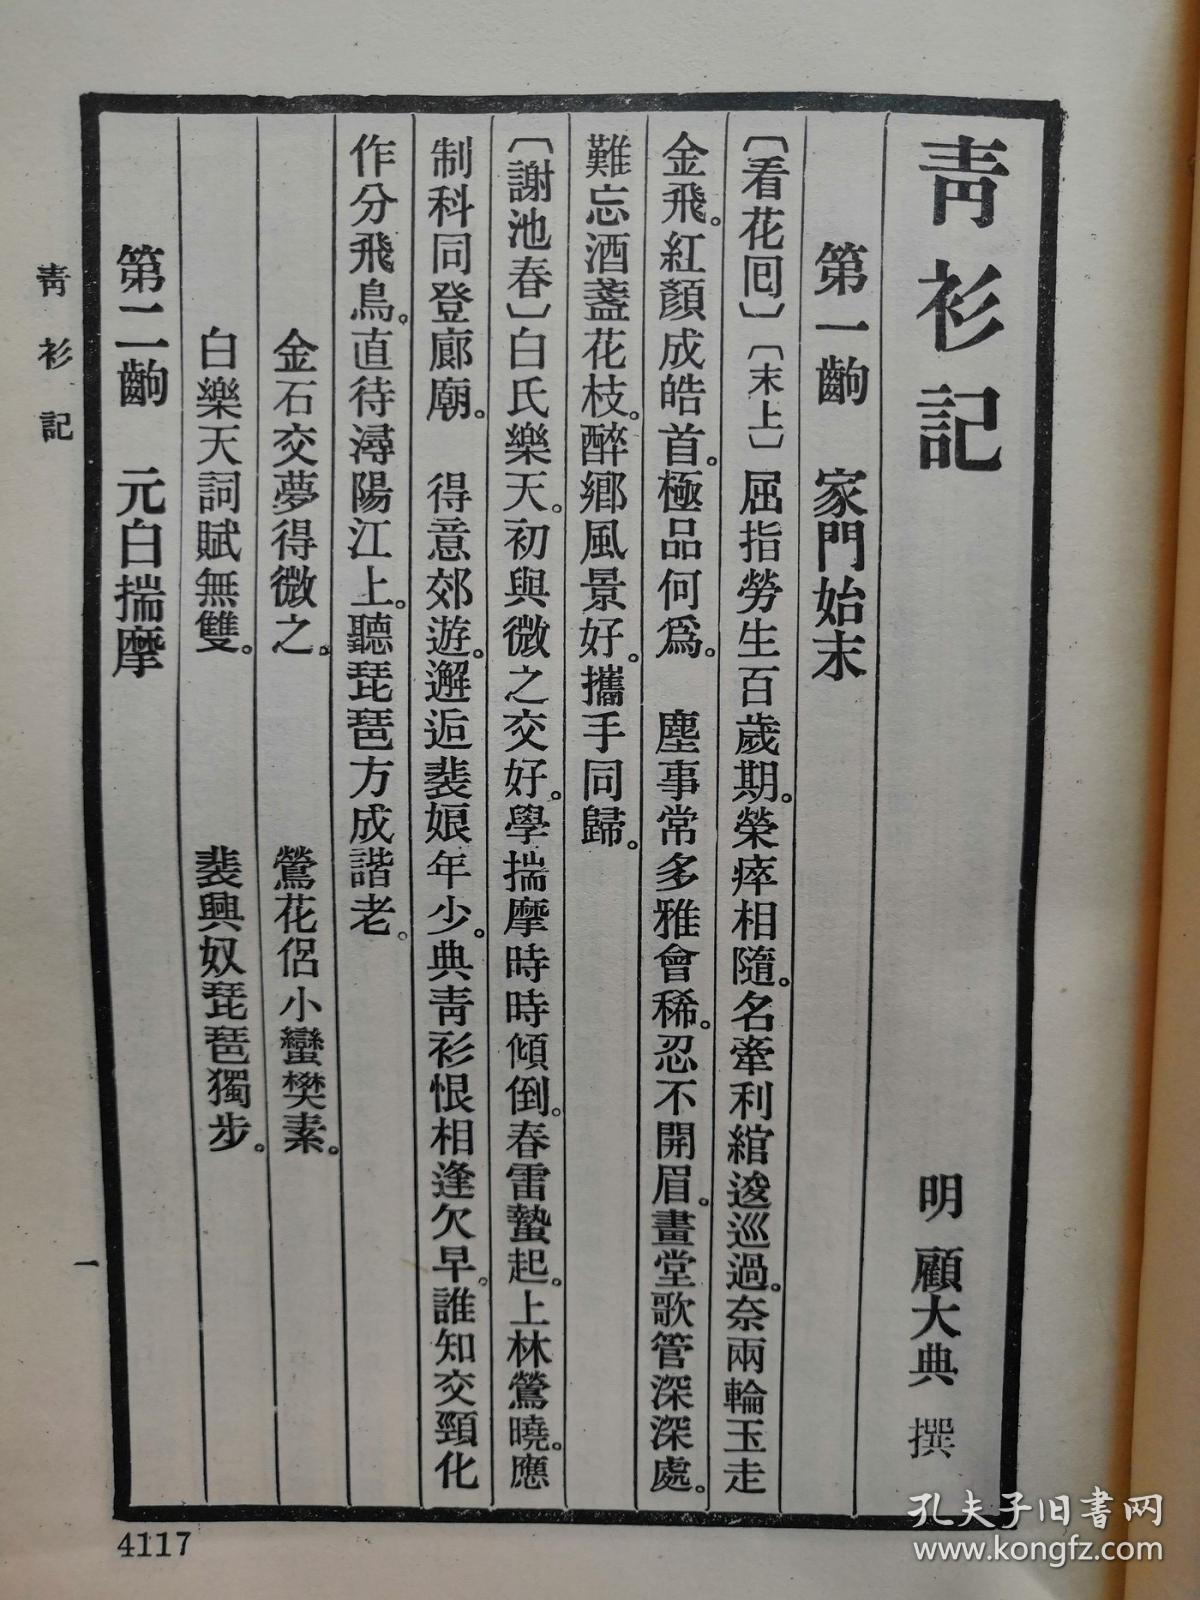 青衫記
明 顧大典 撰
第一齣 家門始末
〔看花囘〕〔末上〕屈指勞生百歲期。榮瘁相隨。名牽利綰逡巡過。奈兩輪玉走
金飛。紅顏成皓首。極品何爲。 塵事常多雅會稀。忍不開眉。畫堂歌管深深處。
難忘酒盞花枝。醉鄉風景好。攜手同歸。
〔謝池春〕白氏樂天。初與微之交好。學揣摩時時傾倒。春雷蟄起。上林鶯曉。應
制科同登廊廟。 得意郊遊。邂逅裴娘年少。典青衫恨相逢欠早。誰知交頸化
作分飛鳥。直待潯陽江上。聽琵琶方成諧老。
金石交夢得微之。 鶯花侶小蠻樊素。
白樂天詞賦無雙。 裴興奴琵琶獨步。
第二齣 元白揣摩
青衫記
一
4117
孔夫子旧书网
www.kongfz.com